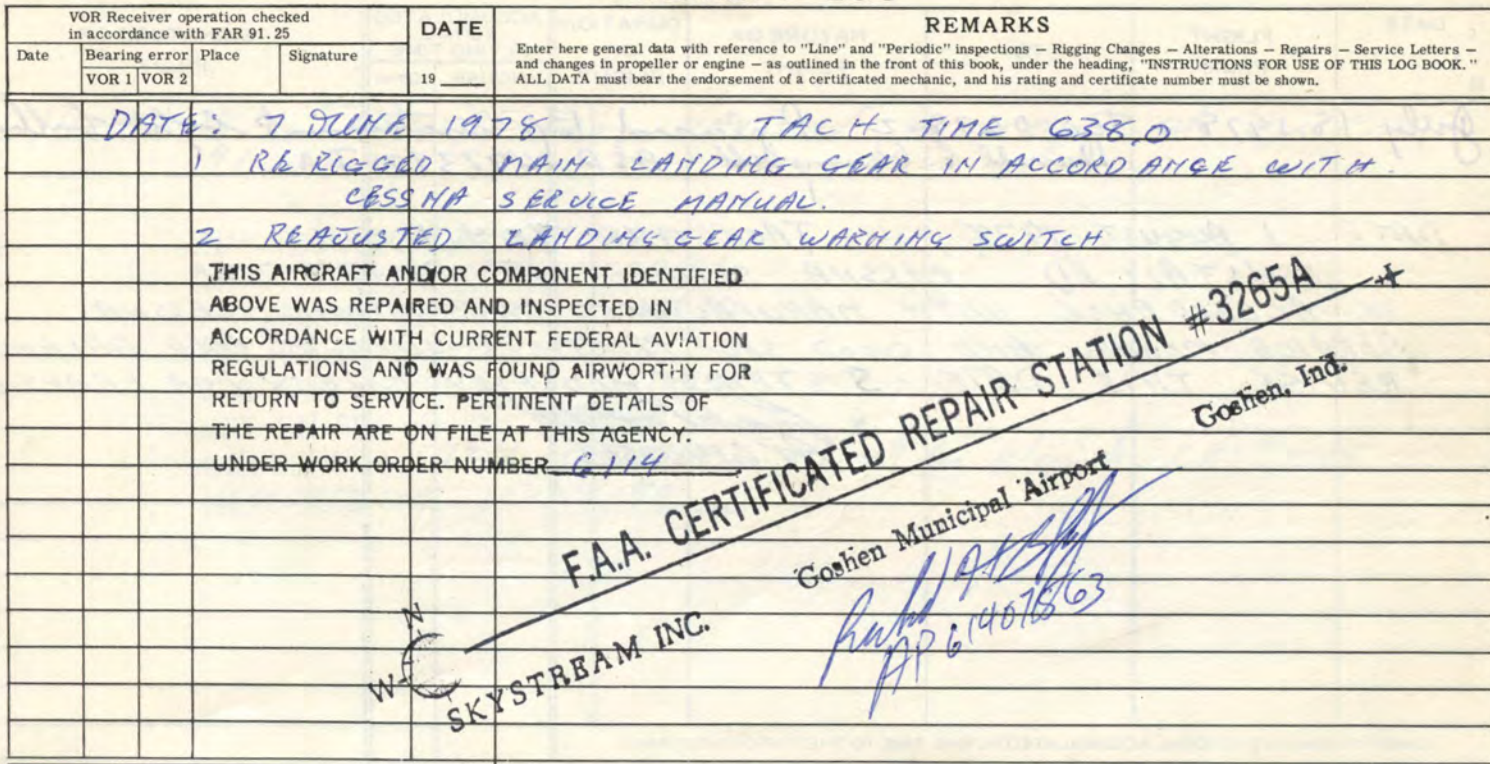 VOR Receiver operation checked
in accordance with FAR 91.25
Date
Bearing error
VOR 1 VOR 2
Place
Signature
DATE
19
REMARKS
Enter here general data with reference to "Line" and "Periodic" inspections — Rigging Changes — Alterations — Repairs — Service Letters —
and changes in propeller or engine — as outlined in the front of this book, under the heading, "INSTRUCTIONS FOR USE OF THIS LOG BOOK."
ALL DATA must bear the endorsement of a certificated mechanic, and his rating and certificate number must be shown.
DATE: 7 JUNE 1978 TACH TIME 638.0
1 RERIGGED MAIN LANDING GEAR IN ACCORDANCE WITH.
CESSNA SERVICE MANUAL.
2 READJUSTED LANDING GEAR WARNING SWITCH
THIS AIRCRAFT AND/OR COMPONENT IDENTIFIED
ABOVE WAS REPAIRED AND INSPECTED IN
ACCORDANCE WITH CURRENT FEDERAL AVIATION
REGULATIONS AND WAS FOUND AIRWORTHY FOR
RETURN TO SERVICE. PERTINENT DETAILS OF
THE REPAIR ARE ON FILE AT THIS AGENCY.
UNDER WORK ORDER NUMBER 6114
F.A.A. CERTIFICATED REPAIR STATION #3265A
Goshen Municipal Airport Goshen, Ind.
N
W
SKYSTREAM INC.